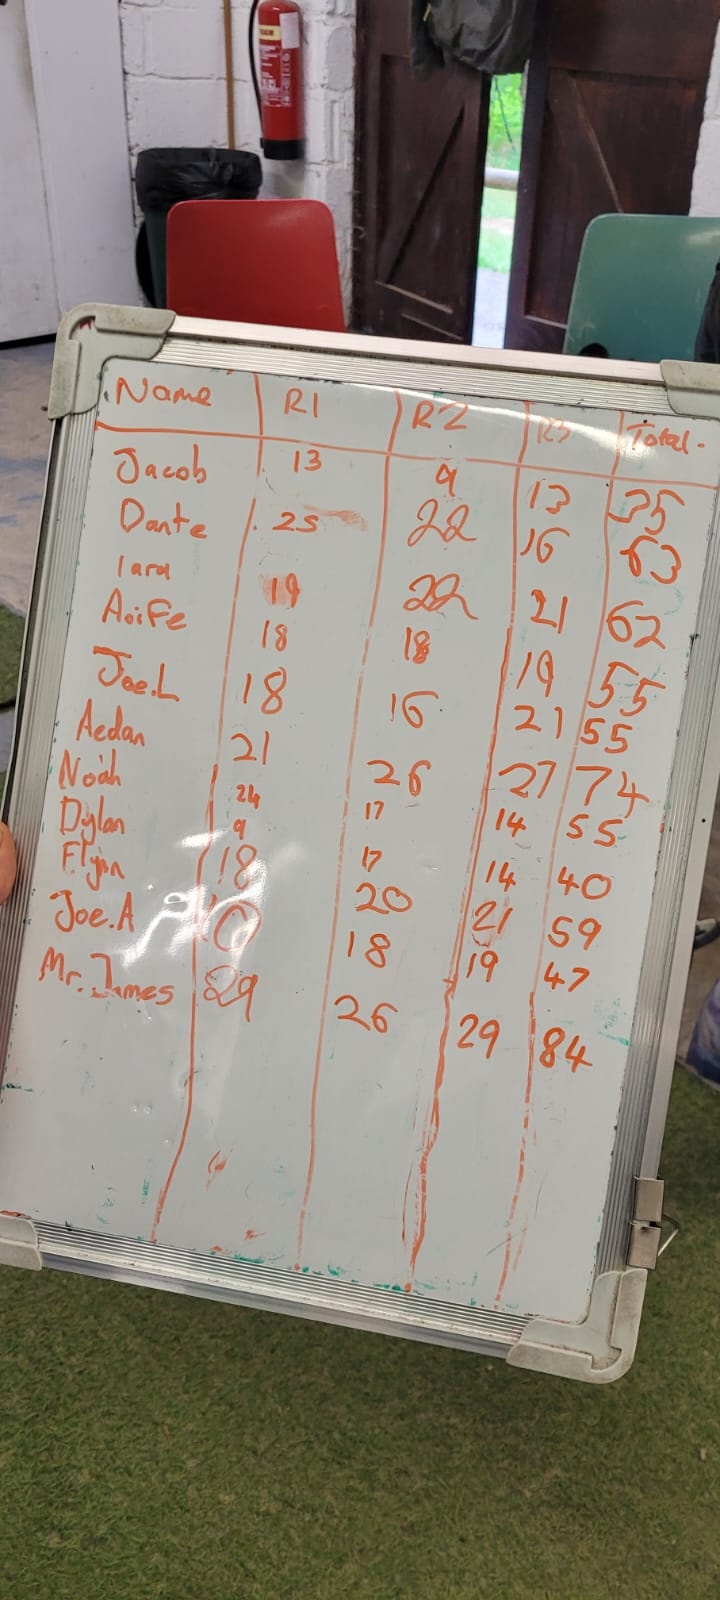 Name R1 R2 R3 Total.
Jacob 13 9 13 35
Dante 25 22 16 63
Iara 19 22 21 62
Aoife 18 18 19 55
Joe.L 18 16 21 55
Aedan 21 26 27 74
Noah 24 17 14 55
Dylan 9 17 14 40
Flynn 18 20 21 59
Joe.A 10 18 19 47
Mr. James 29 26 29 84